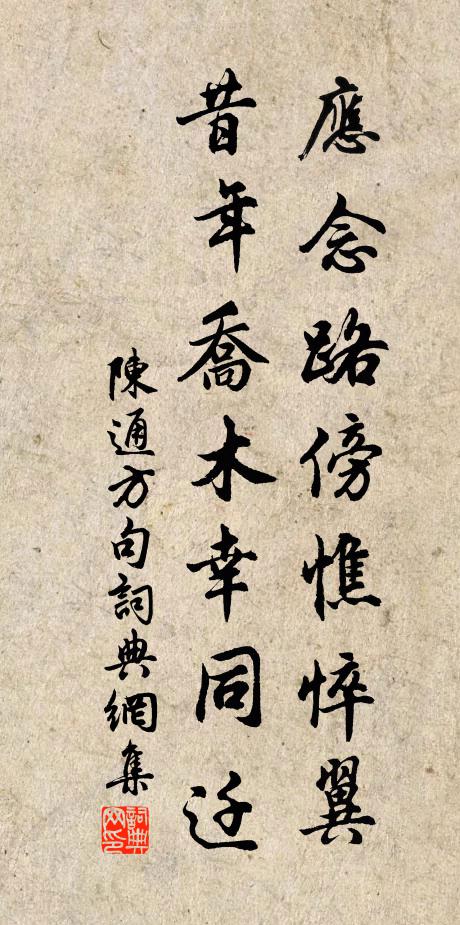 應念路傍憔悴翼
昔年喬木幸同迁
陳通方句詞典網集
詞典
网印